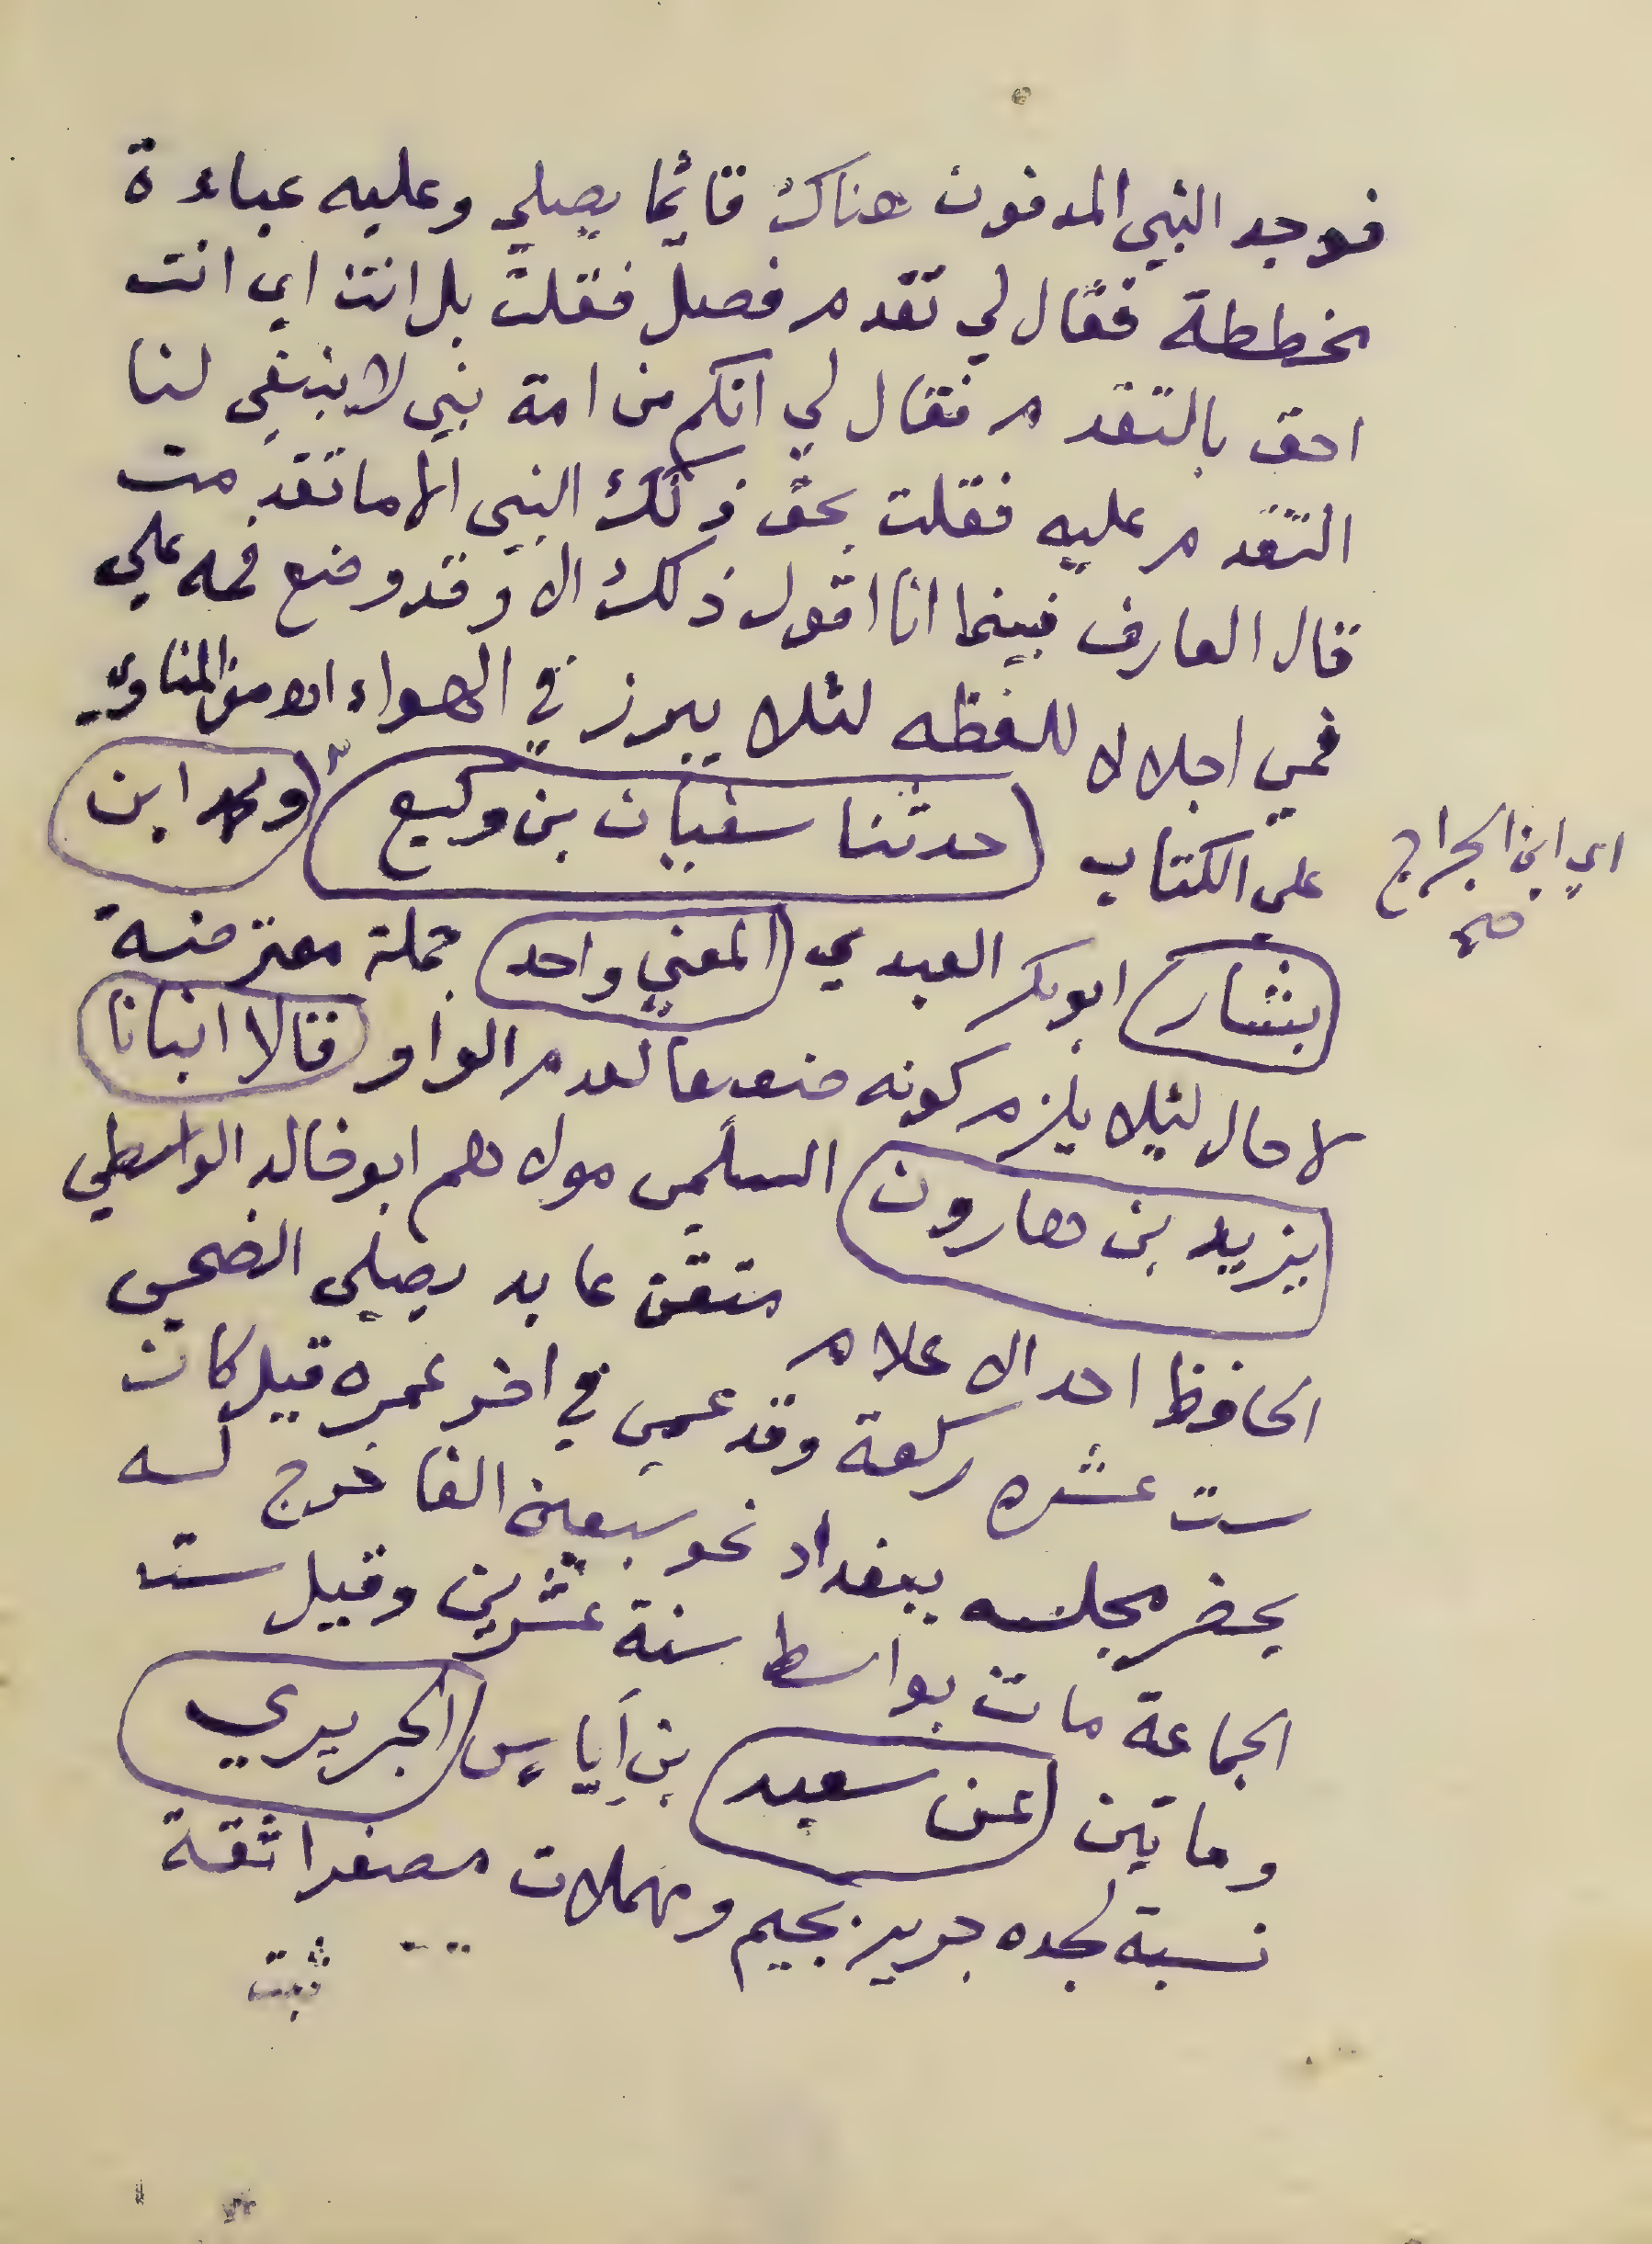 فوجد النبي المدفون هناك قائما يصلي وعليه عباءة
مخططة فقال لي تقدم فصل فقلت بل انت اي انت
احق بالتقدم فقال لي انكم من امة نبي لا ينبغي لنا
التقدم عليه فقلت بحق ذلك النبي الا ما تقدمت
قال العارف فبينما انا اقول ذلك الا وقد وضع فمه علي
فمي اجلالا للفظه لئلا يبرز في الهواء اه من المناوي
علي الكتاب (حدثنا سفيان بن وكيع) (ومحمد ابن
اي ابن الجراح
صح
بشار) ابو بكر العبدي (المعني واحد) جملة معترضة
لا حال لئلا يلزم كونه ضعيفا لعدم الواو (قالا انبانا
يزيد بن هارون) السلمي مولاهم ابو خالد الواسطي
الحافظ احد الاعلام متقن عابد يصلي الضحي
ست عشره ركعة وقد عمي في اخر عمره قيل كان
يحضر مجلسه ببغداد نحو سبعين الفا خرج له
الجماعة مات بواسط سنة عشرين وقيل ست
ومائتين (عن سعيد) بن اياس (الجريري)
نسبة لجده جرير بجيم ومهملات مصغرا ثقة
ثبت